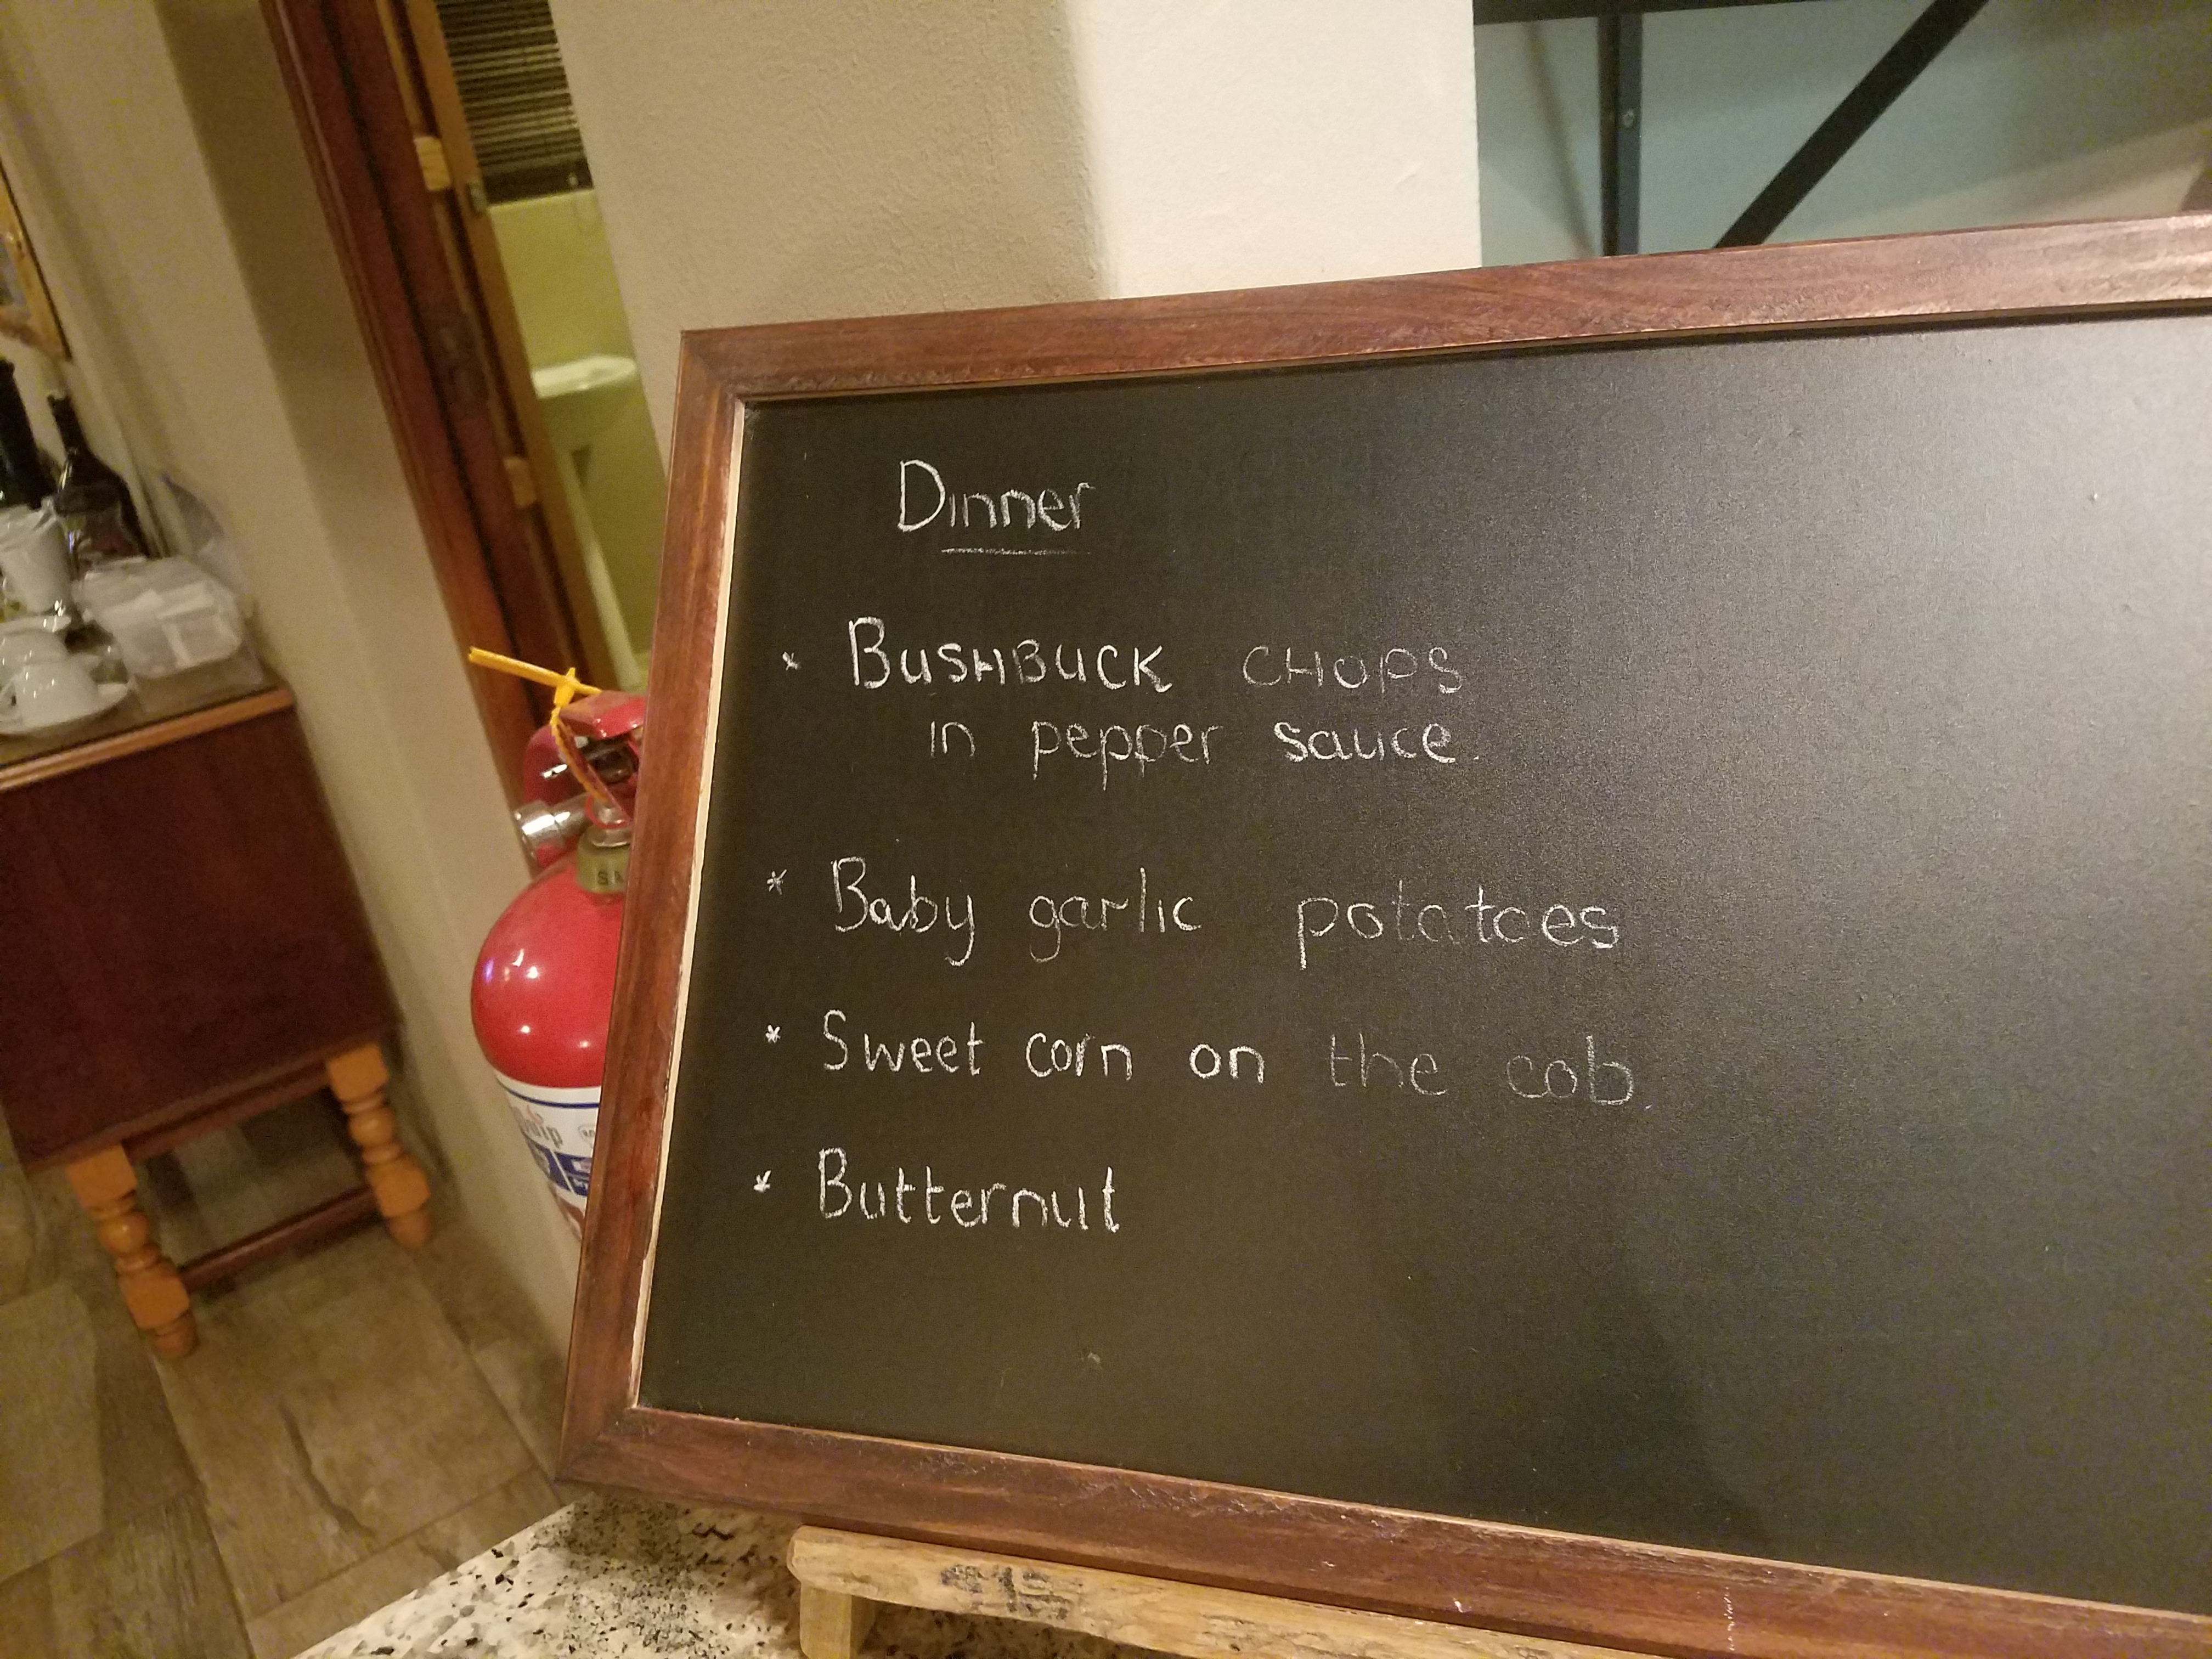 Dinner
* BUSHBUCK CHOPS
in pepper sauce.
* Baby garlic potatoes
* Sweet corn on the cob.
* Butternut
SA